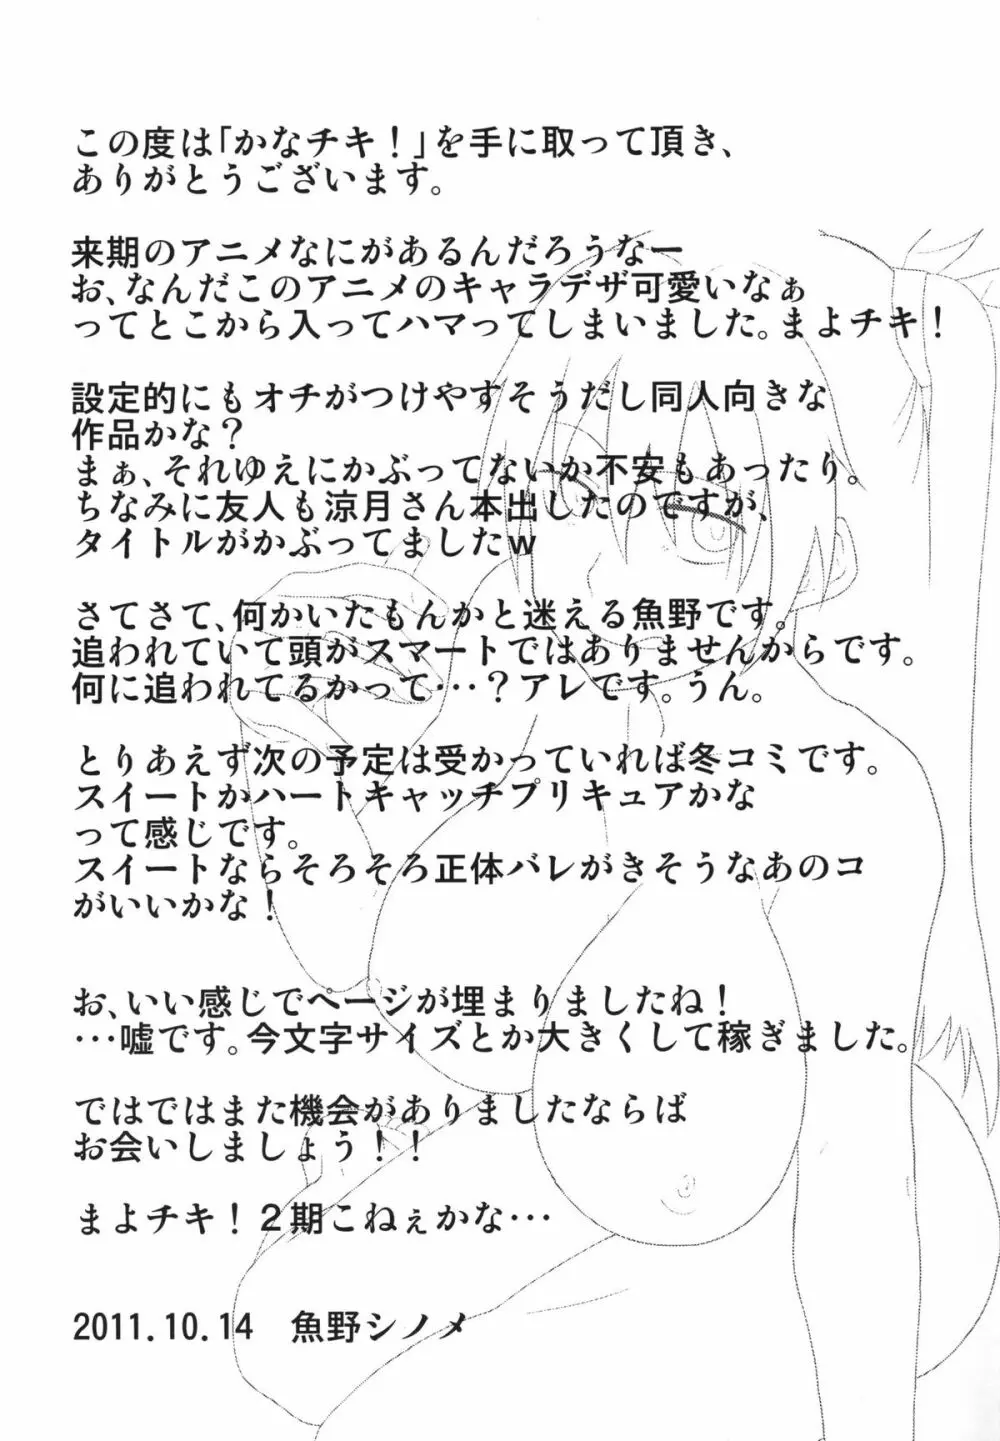 この度は「かなチキ！」を手に取って頂き、
ありがとうございます。
来期のアニメなにがあるんだろうなー
お、なんだこのアニメのキャラデザ可愛いなぁ
ってとこから入ってハマってしまいました。まよチキ！
設定的にもオチがつけやすそうだし同人向きな
作品かな？
まぁ、それゆえにかぶってないか不安もあったり。
ちなみに友人も涼月さん本出したのですが、
タイトルがかぶってましたｗ
さてさて、何かいたもんかと迷える魚野です。
追われていて頭がスマートではありませんからです。
何に追われてるかって…？アレです。うん。
とりあえず次の予定は受かっていれば冬コミです。
スイートかハートキャッチプリキュアかな
って感じです。
スイートならそろそろ正体バレがきそうなあのコ
がいいかな！
お、いい感じでページが埋まりましたね！
…嘘です。今文字サイズとか大きくして稼ぎました。
ではではまた機会がありましたならば
お会いしましょう！！
まよチキ！２期こねぇかな…
2011.10.14　魚野シノメ